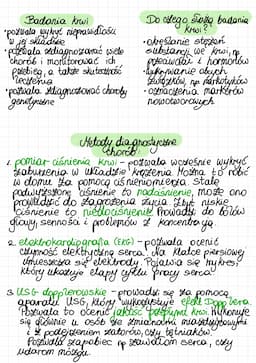 Badania krwi
• pozwala wykryć nieprawidłości
w jej składzie
• pozwala zdiagnozować wiele
chorób i monitorować ich
przebieg, a także skuteczność
leczenia
• pozwala zdiagnozować choroby
genetyczne
Do czego służą badania
krwi?
• określanie stężeń
substancji we krwi, np.
przeciwciał i hormonów
• wykrywanie obcych
związków, np. narkotyków
• oznaczenia markerów
nowotworowych
Metody diagnostyczne
chorób
1. pomiar ciśnienia krwi - pozwala wcześnie wykryć
zaburzenia w układzie krążenia. Można to robić
w domu za pomocą ciśnieniomierza. Stale
podwyższone ciśnienie to nadciśnienie, może ono
prowadzić do zagrożenia życia. Zbyt niskie
ciśnienie to niedociśnienie. Prowadzi do bólów
głowy, senności i problemów z koncentracją.
2. elektrokardiografia (EKG) - pozwala ocenić
czynność elektryczną serca. Na klatce piersiowej
umieszcza się elektrody. Pojawia się wykres,
który ukazuje etapy cyklu pracy serca.
3. USG dopplerowskie - prowadzi się za pomocą
aparatu USG, który wykorzystuje efekt Dopplera.
Pozwala to ocenić jakość przepływu krwi. Wykonuje
się głównie u osób ze zmianami miażdżycowymi
i z podejrzeniem zatorów, czy tętniaków.
Pozwala zapobiec np. zawałom serca, czy
udarom mózgu.